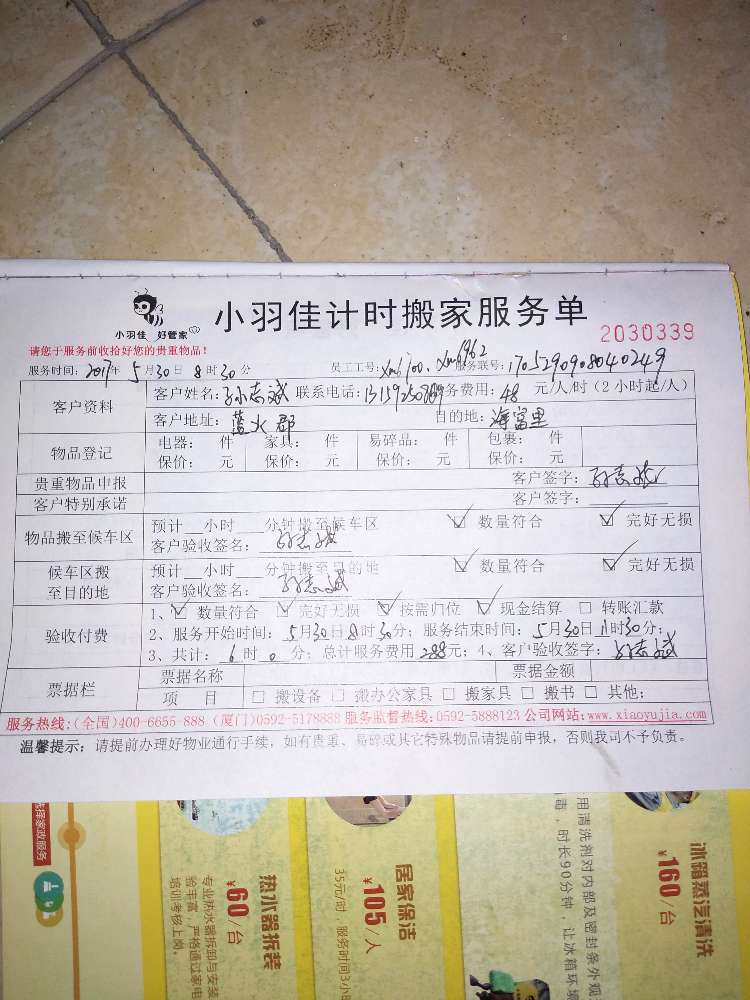 小羽佳 好管家
小羽佳计时搬家服务单
2030339
请您于服务前收拾好您的贵重物品！
服务时间：2017年5月30日8时30分 员工工号：xm6700、xm6962 服务联号：170529090804 0249
客户资料
客户姓名：孙志斌 联系电话： 服务费用：48 元/人/时（2小时起/人）
客户地址：蓝水郡 目的地：海富里
物品登记
电器： 件 家具： 件 易碎品： 件 包裹： 件
保价： 元 保价： 元 保价： 元 保价： 元
贵重物品申报 客户签字：孙志斌
客户特别承诺 客户签字：
物品搬至候车区
预计 小时 分钟搬至候车区 ☑ 数量符合 ☑ 完好无损
客户验收签名：孙志斌
候车区搬
至目的地
预计 小时 分钟搬至目的地 ☑ 数量符合 ☑ 完好无损
客户验收签名：孙志斌
验收付费
1、☑ 数量符合 ☑ 完好无损 ☑ 按需归位 ☑ 现金结算 □ 转账汇款
2、服务开始时间：5月30日8时30分；服务结束时间：5月30日11时30分；
3、共计：6时0分；总计服务费用288元；4、客户验收签字：孙志斌
票据栏
票据名称 票据金额
项 目 □ 搬设备 □ 搬办公家具 □ 搬家具 □ 搬书 □ 其他：
服务热线：(全国)400-6655-888 (厦门)0592-5178888 服务监督热线：0592-5888123 公司网站：www.xiaoyujia.com
温馨提示：请提前办理好物业通行手续，如有贵重、易碎或其它特殊物品请提前申报，否则我司不予负责。
择家政服务
热水器拆装
¥60/台
专业热水器拆卸与安装
验丰富，严格通过家电
培训考核上岗。
居家保洁
¥105/人
35元/时，服务时间3小时
冰箱蒸汽清洗
¥160/台
用清洗剂对内部及密封条外观
毒，时长90分钟，让冰箱环境